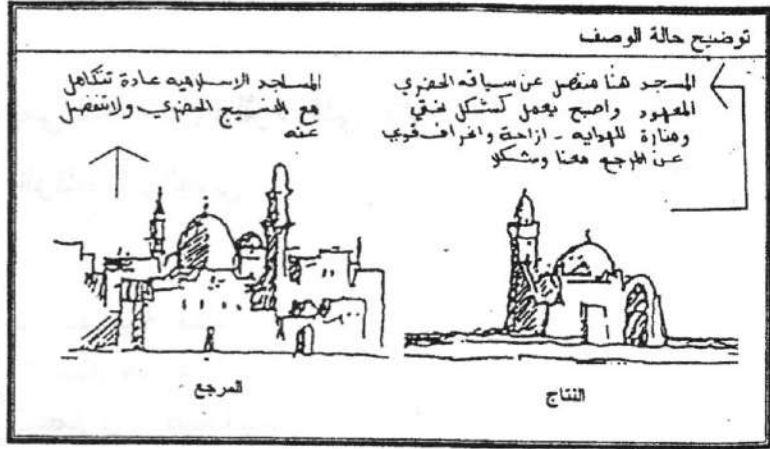 توضيح حالة الوصف
المسجد هنا منفصل عن سياقه الحضري
المعهود واصبح يعمل كشكل نحتي
ومنارة للهدايه - ازاحة وانحراف قوي
عن المرجع معنا ومشكلا
المساجد الاسلاميه عادة تتكامل
مع النسيج الحضري ولا تنفصل
عنه
النتاج
المرجع